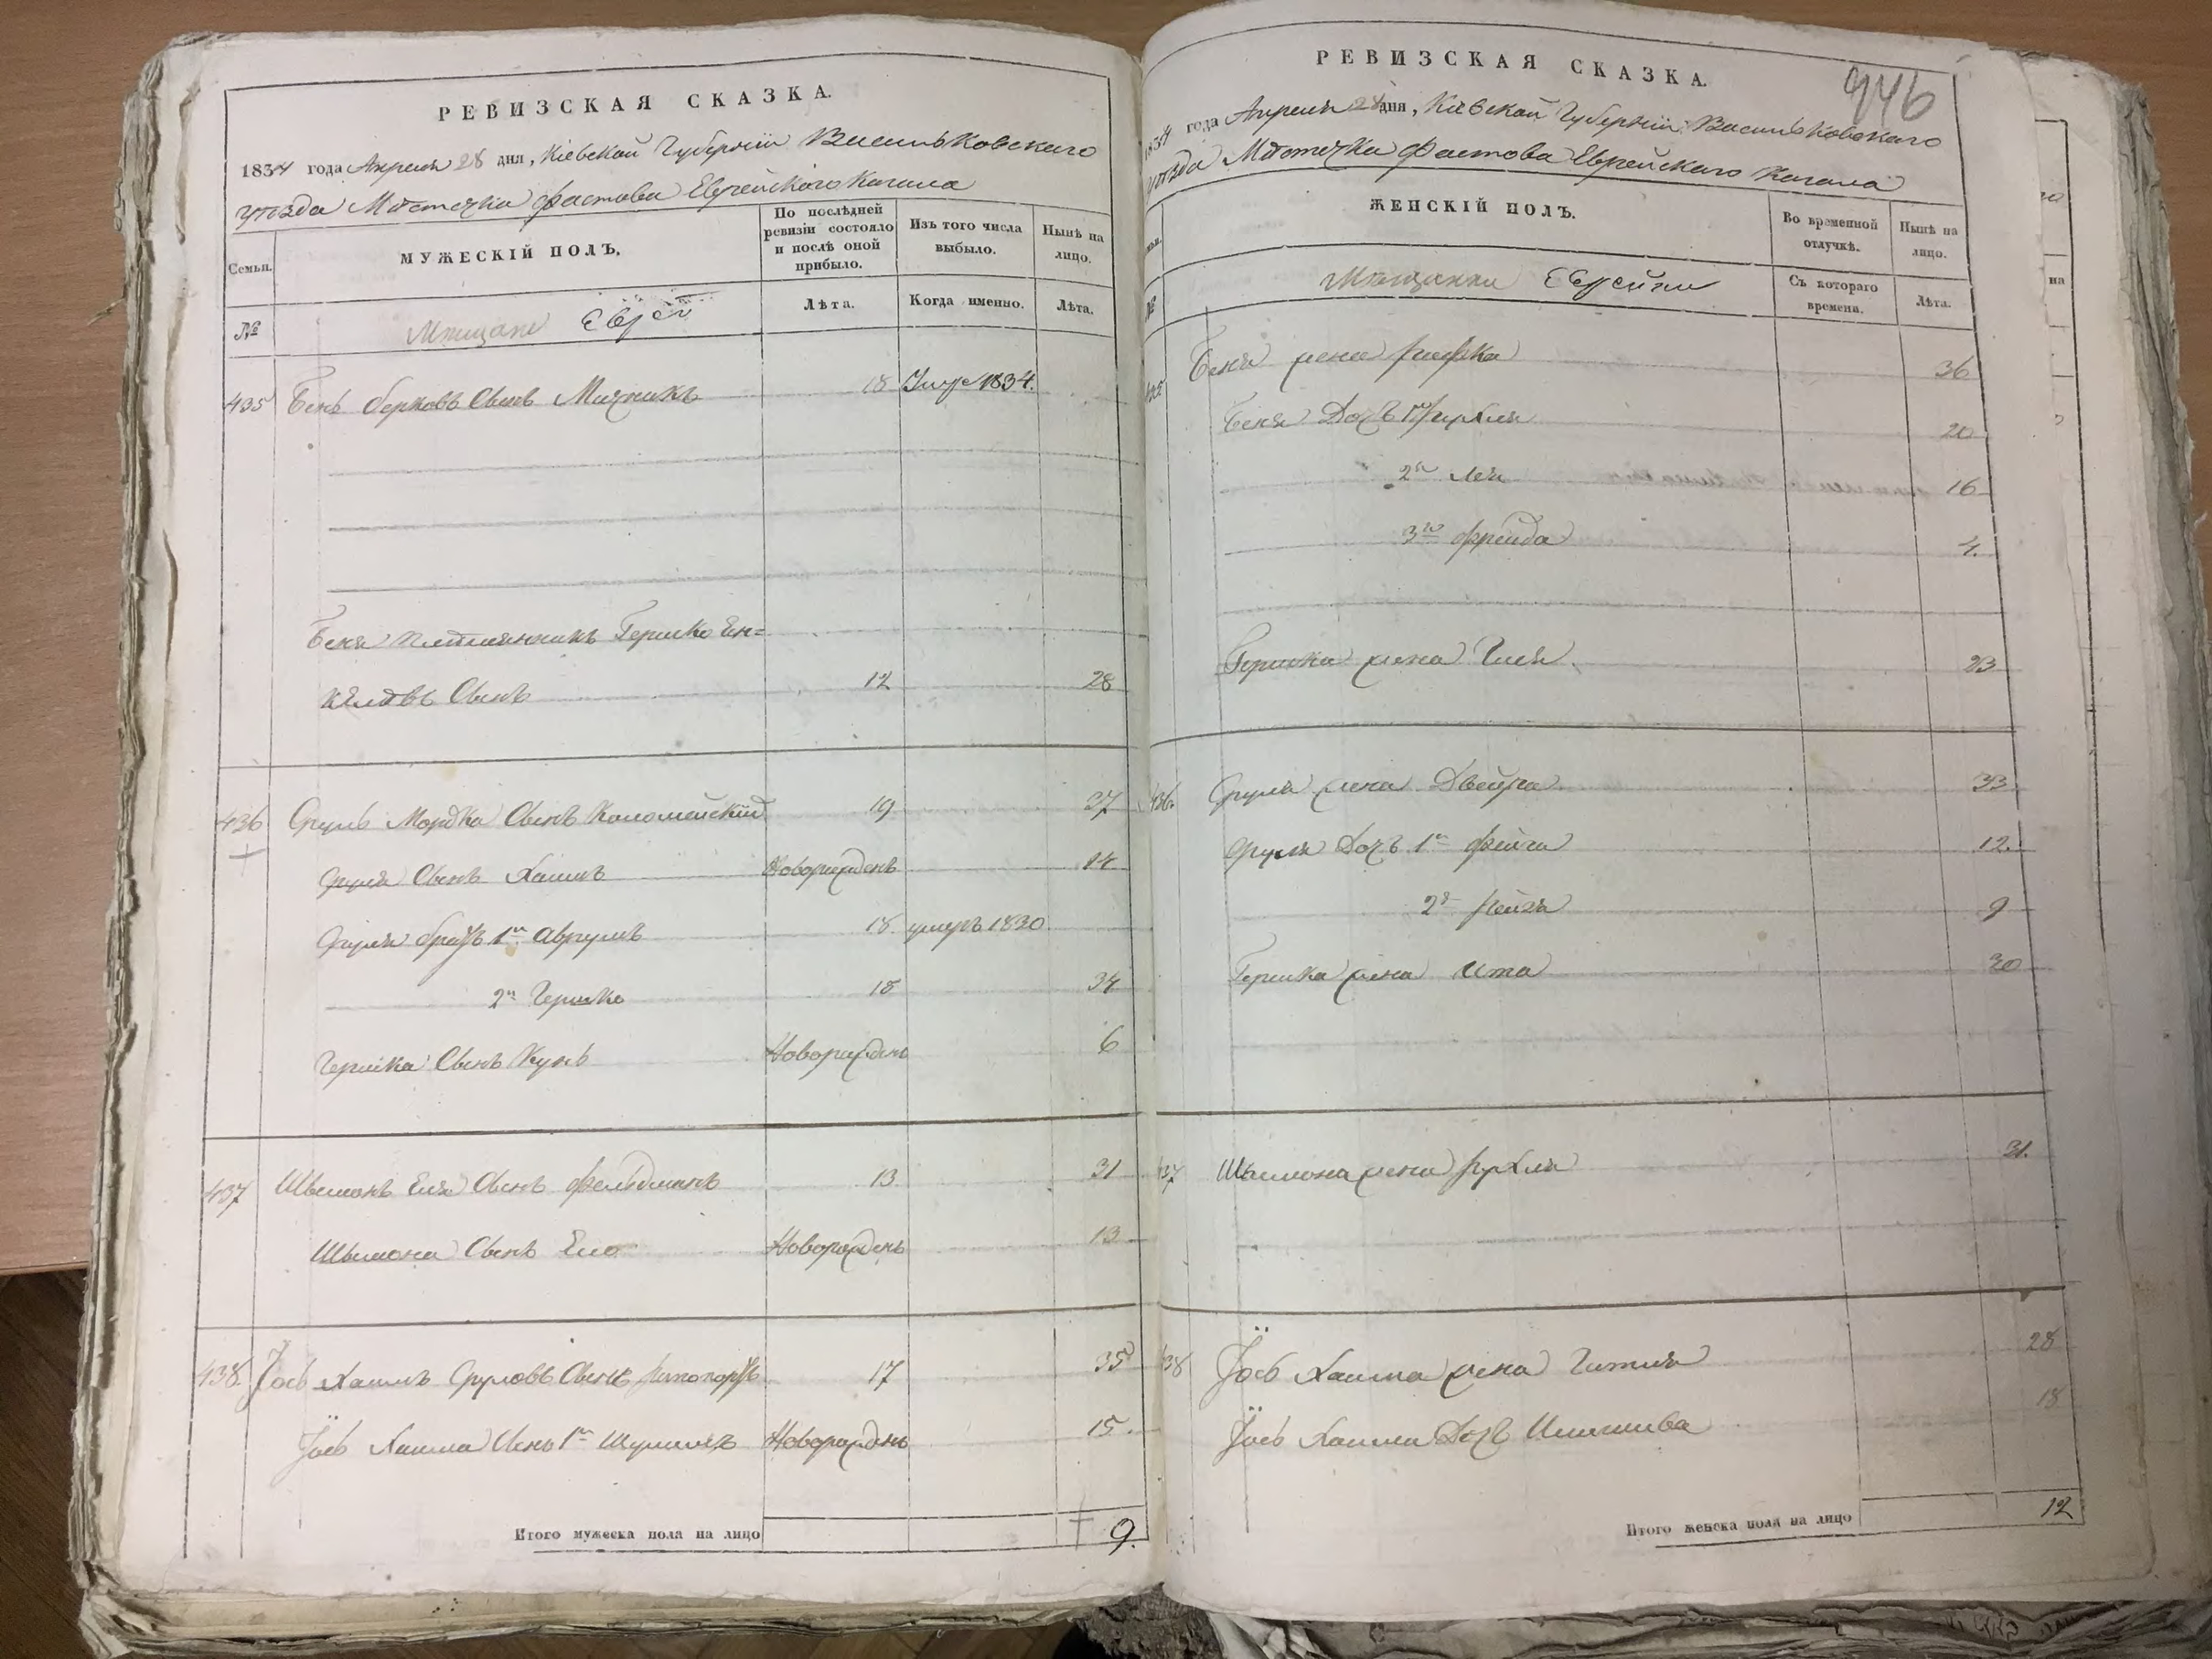 РЕВИЗСКАЯ СКАЗКА.
1834 года Апреля 28 дня, Кіевской Губерніи Васильковскаго
уѣзда Мѣстечка Фастова Еврейскаго Кагала
Семьи.
МУЖЕСКІЙ ПОЛЪ.
По послѣдней ревизіи состояло и послѣ оной прибыло.
Изъ того числа выбыло.
Нынѣ на лицо.
№
Мѣщане Евреи
Лѣта.
Когда именно.
Лѣта.
435 Бень Берковъ Сынъ 18 1834.
Беня племянникъ Гершко Ен=
келевъ Сынъ 12 28
436 Сруль Мордка Сынъ Коломейскій 19 37
Сруля Сынъ Хаимъ Новорожденъ 14
Сруля братъ 1й Аврумъ 18 умеръ 1830
2й Гершко 18 34
Гершка Сынъ Новорожденъ 6
437 Шлемонъ Еля Сынъ Фельдманъ 13 31
Шлемона Сынъ Ело Новорожденъ 13
438. Іосъ Хаимъ Сруловъ Сынъ 17 35
Іосъ Хаима Сынъ 1й Шулимъ Новорожденъ 15.
Итого мужеска пола на лицо 9.
РЕВИЗСКАЯ СКАЗКА.
946
1834 года Апреля 28 дня, Кіевской Губерніи Васильковскаго
уѣзда Мѣстечка Фастова Еврейскаго Кагала
ЖЕНСКІЙ ПОЛЪ.
Во временной отлучкѣ.
Нынѣ на лицо.
№
Мѣщанки Еврейки
Съ котораго времени.
Лѣта.
435 Беня жена Рифка 36
Беня Дочь Рухля 20
2я Лея 16
3я Фрейда 4.
Гершка жена 23
436. Сруля жена Двейра 33
Сруля Дочь 1я Фейга 12.
2я Рейзя 9
Гершка жена Ита 30
437 Шлемона жена Рухля 31.
438 Іосъ Хаима жена Гитля 28
Іосъ Хаима Дочь 18
Итого женска пола на лицо 12